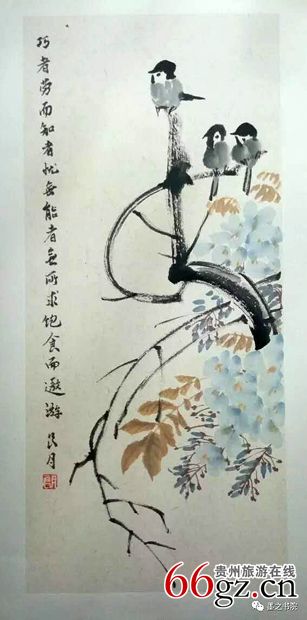 巧者劳而知者忧無能者無所求饱食而遨游
贵州旅游在线
66gz.cn
墨之书院